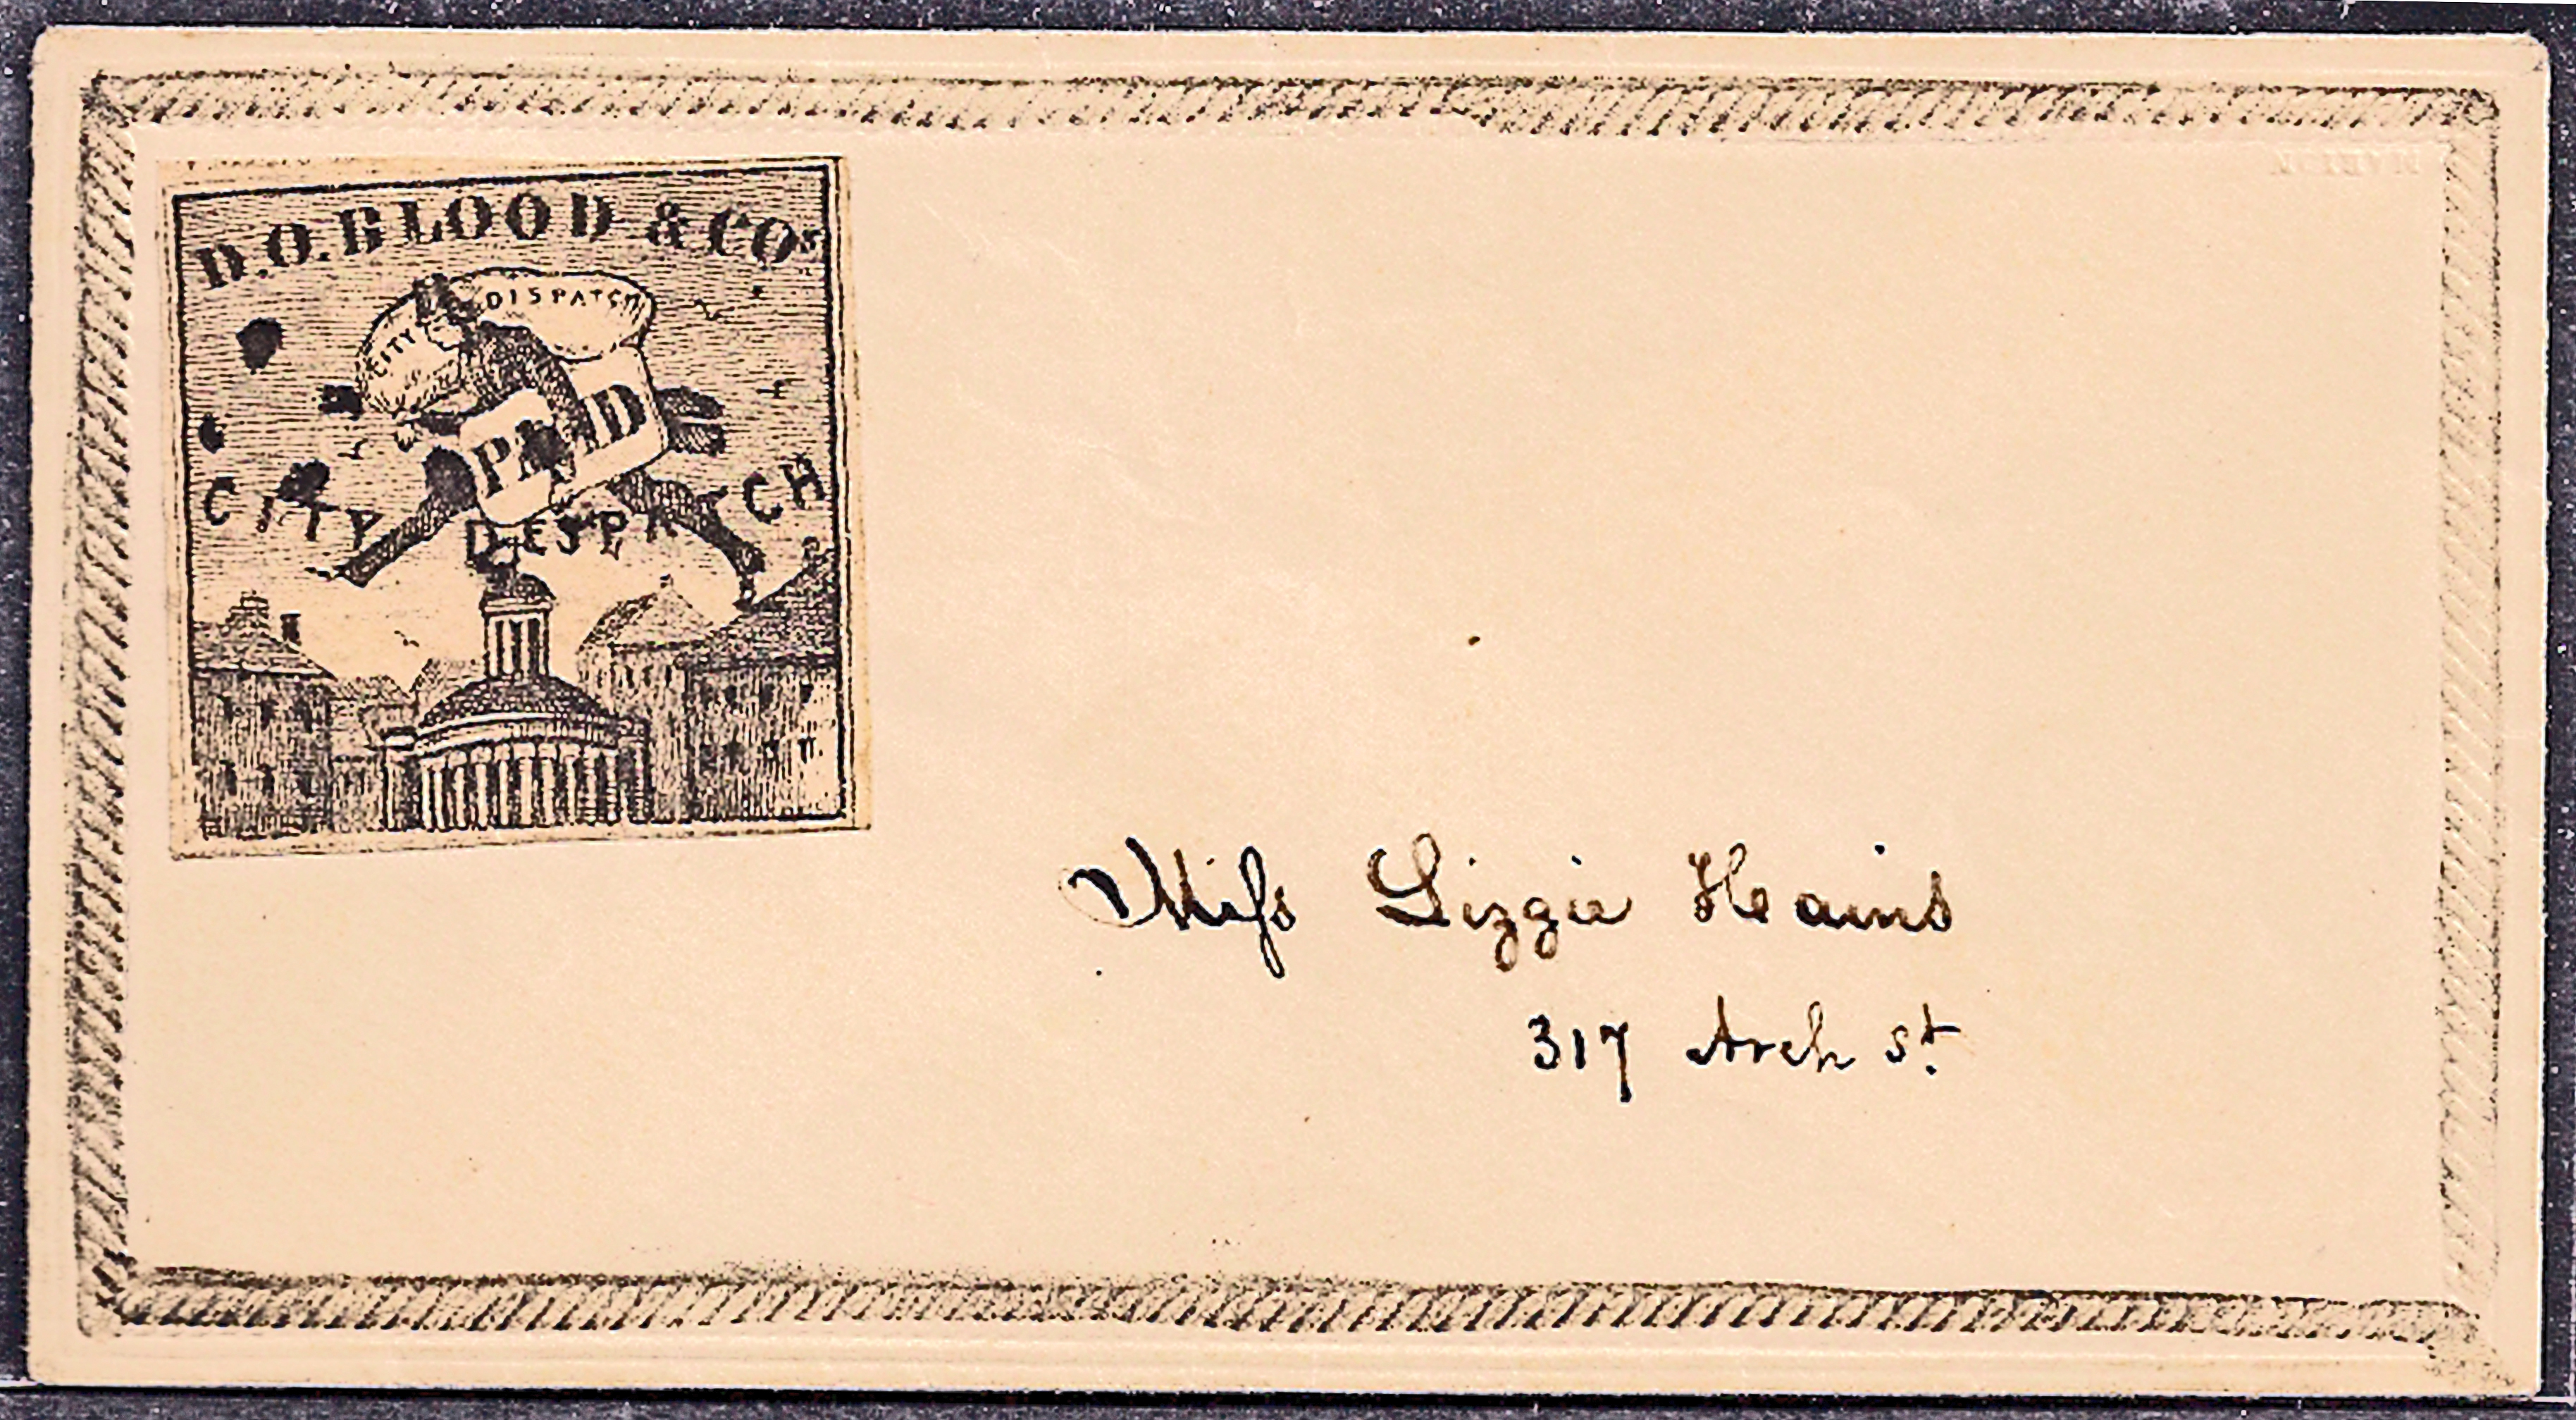 D.O. BLOOD & COS
CITY DISPATCH
PAID
CITY DESPATCH
Miſs Lizzie Hains
317 Arch St